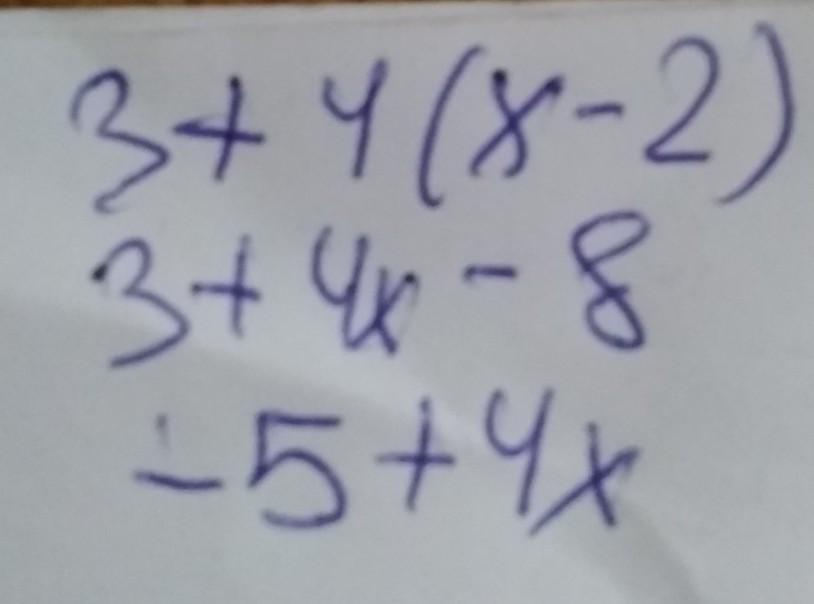 3+4(x-2)
3+4x-8
-5+4x